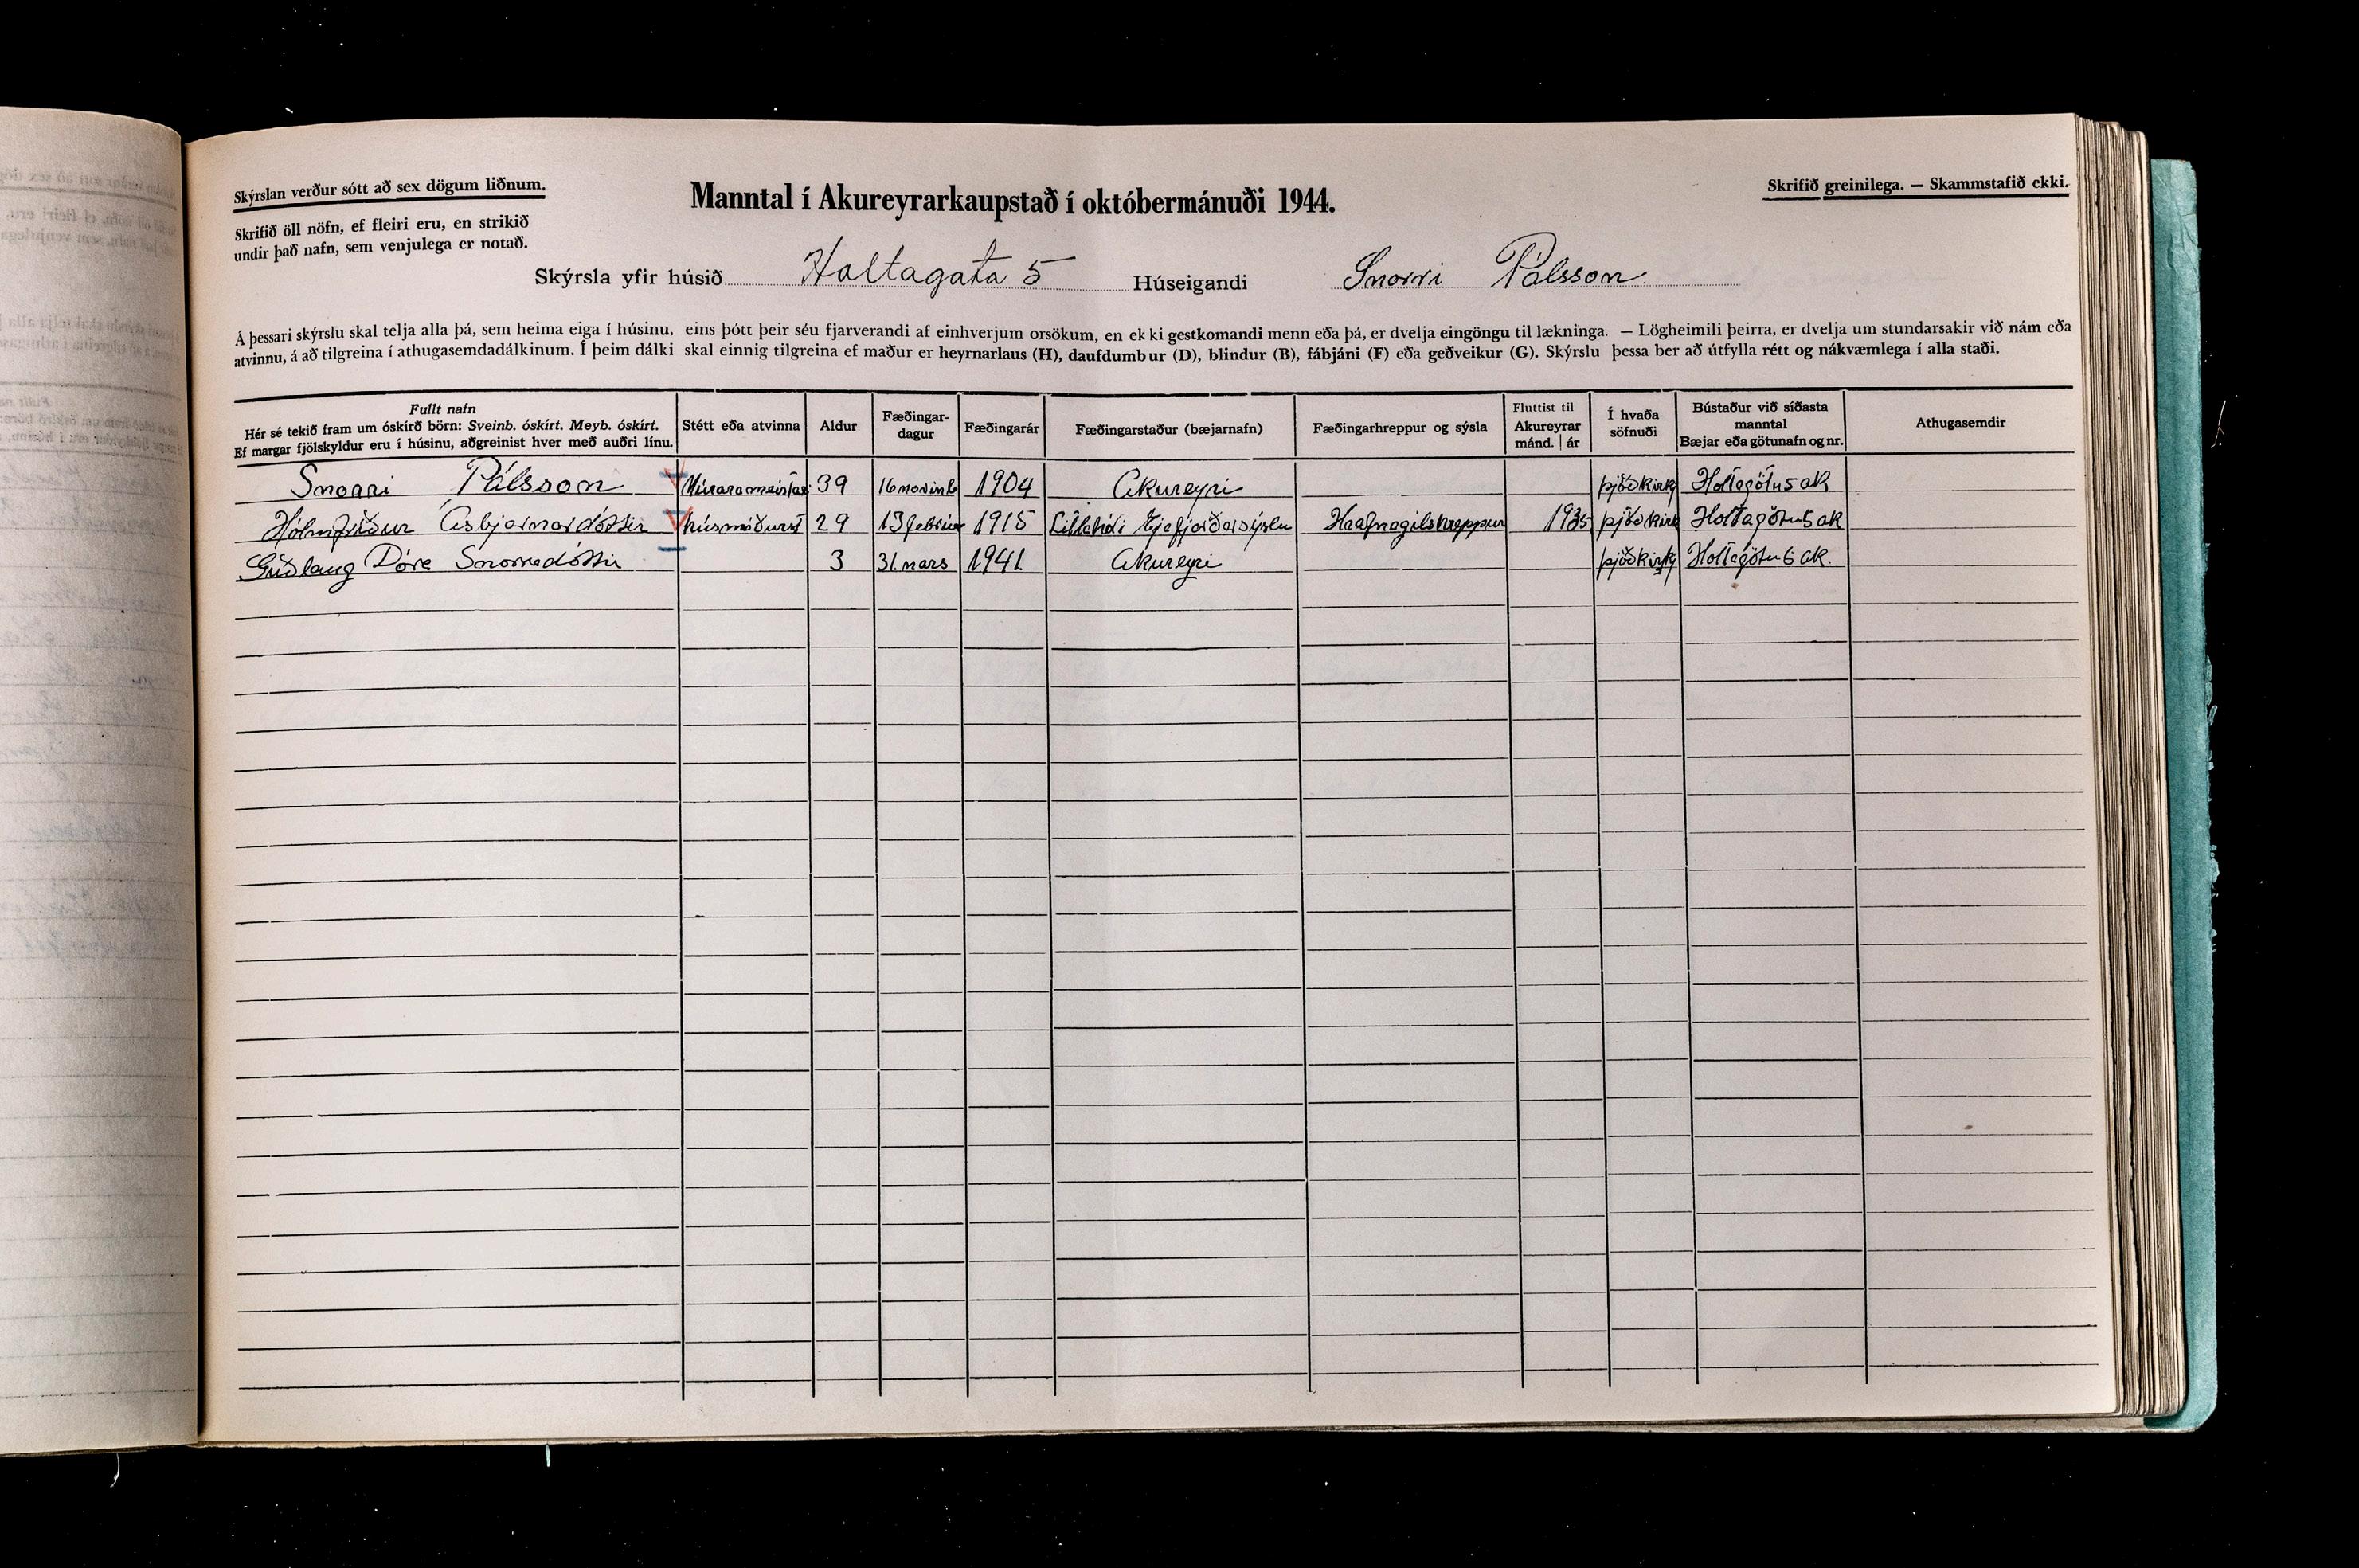 Skýrslan verður sótt að sex dögum liðnum.
Skrifið öll nöfn, ef fleiri eru, en strikið
undir það nafn, sem venjulega er notað.
Manntal í Akureyrarkaupstað í októbermánuði 1944.
Skrifið greinilega. — Skammstafið ekki.
Skýrsla yfir húsið Holtagata 5 Húseigandi Snorri Pálsson
Á þessari skýrslu skal telja alla þá, sem heima eiga í húsinu, eins þótt þeir séu fjarverandi af einhverjum orsökum, en ekki gestkomandi menn eða þá, er dvelja eingöngu til lækninga. — Lögheimili þeirra, er dvelja um stundarsakir við nám eða
atvinnu, á að tilgreina í athugasemdadálkinum. Í þeim dálki skal einnig tilgreina ef maður er heyrnarlaus (H), daufdumbur (D), blindur (B), fábjáni (F) eða geðveikur (G). Skýrslu þessa ber að útfylla rétt og nákvæmlega í alla staði.
Fullt nafn
Hér sé tekið fram um óskírð börn: Sveinb. óskírt. Meyb. óskírt.
Ef margar fjölskyldur eru í húsinu, aðgreinist hver með auðri línu.
Stétt eða atvinna
Aldur
Fæðingar-
dagur
Fæðingarár
Fæðingarstaður (bæjarnafn)
Fæðingarhreppur og sýsla
Fluttist til
Akureyrar
mánd. | ár
Í hvaða
söfnuði
Bústaður við síðasta
manntal
Bæjar eða götunafn og nr.
Athugasemdir
Snorri Pálsson Múrarameistari 39 16 novinb 1904 Akureyri þjóðkirkj Holtagötu 5 ak
Hólmfríður Ásbjarnardóttir húsmóðurst 29 13 febrúar 1915 Litlahóli Eyjafjarðarsýslu Hrafnagilshreppur 1935 þjóðkirk Holtagötu 5 ak
Guðlaug Dóra Snorradóttir 3 31. mars 1941. Akureyri þjóðkirkj Holtagötu 5 ak.